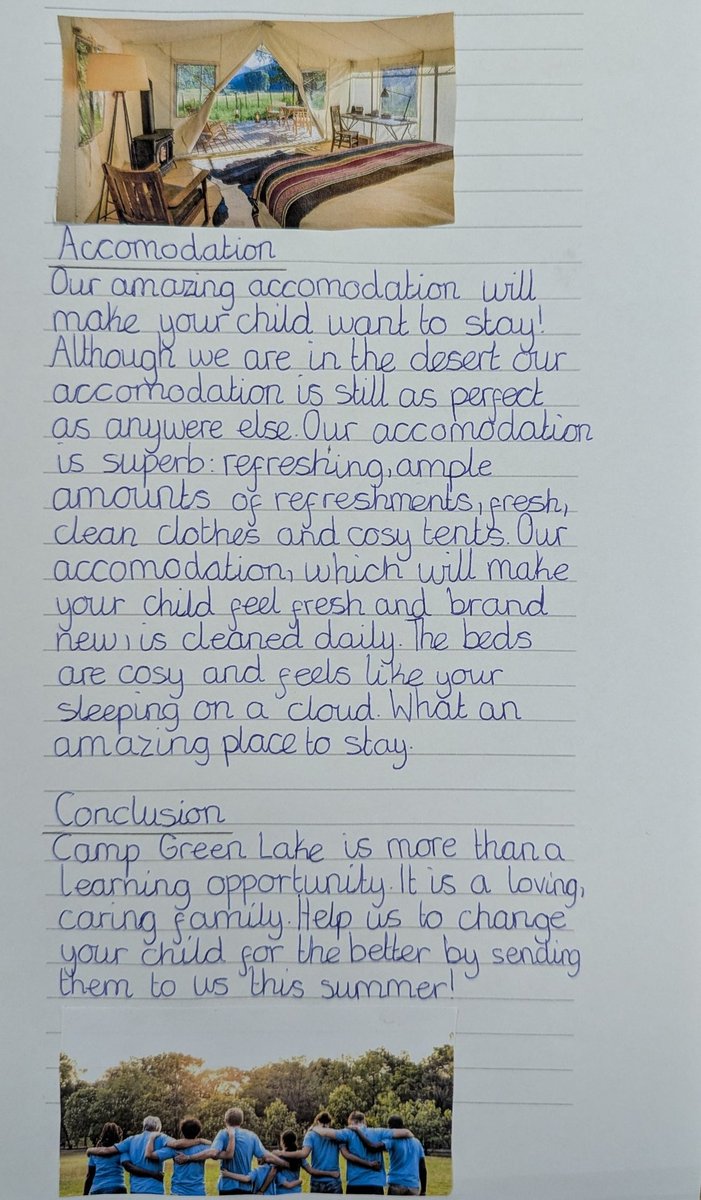 Accomodation
Our amazing accomodation will
make your child want to stay!
Although we are in the desert our
accomodation is still as perfect
as anywere else. Our accomodation
is superb: refreshing, ample
amounts of refreshments, fresh,
clean clothes and cosy tents. Our
accomodation, which will make
your child feel fresh and brand
new, is cleaned daily. The beds
are cosy and feels like your
sleeping on a cloud. What an
amazing place to stay.
Conclusion
Camp Green Lake is more than a
learning opportunity. It is a loving,
caring family. Help us to change
your child for the better by sending
them to us this summer!